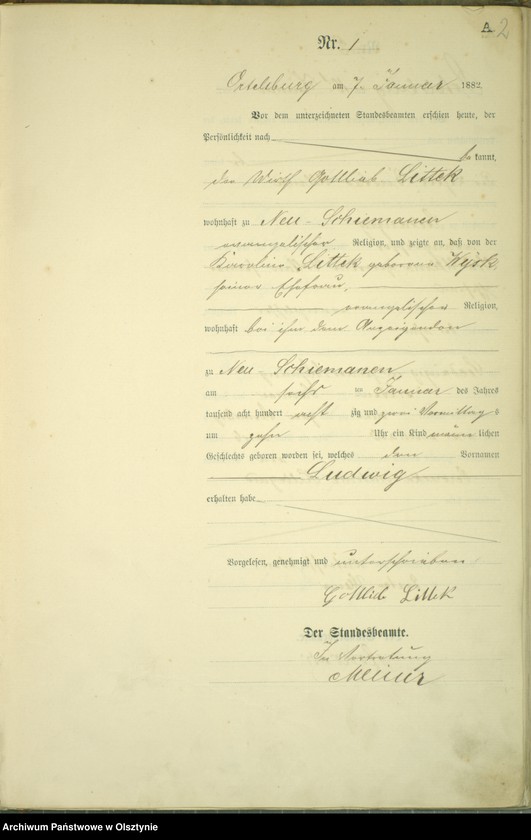 A. 2
Nr. 1
Ortelsburg am 7. Januar 1882.
Vor dem unterzeichneten Standesbeamten erschien heute, der
Persönlichkeit nach
bekannt,
der Wirth Gottlieb Littek
wohnhaft zu Neu-Schiemanen
evangelischer Religion, und zeigte an, daß von der
Karoline Littek geborene Wysk
seiner Ehefrau,
evangelischer Religion,
wohnhaft bei ihm dem Anzeigenden
zu Neu-Schiemanen
am sechs ten Januar des Jahres
tausend acht hundert acht zig und zwei Vormittags
um zehn Uhr ein Kind männlichen
Geschlechts geboren worden sei, welches den Vornamen
Ludwig
erhalten habe
Vorgelesen, genehmigt und unterschrieben
Gottlieb Littek
Der Standesbeamte.
In Vertretung
Archiwum Państwowe w Olsztynie